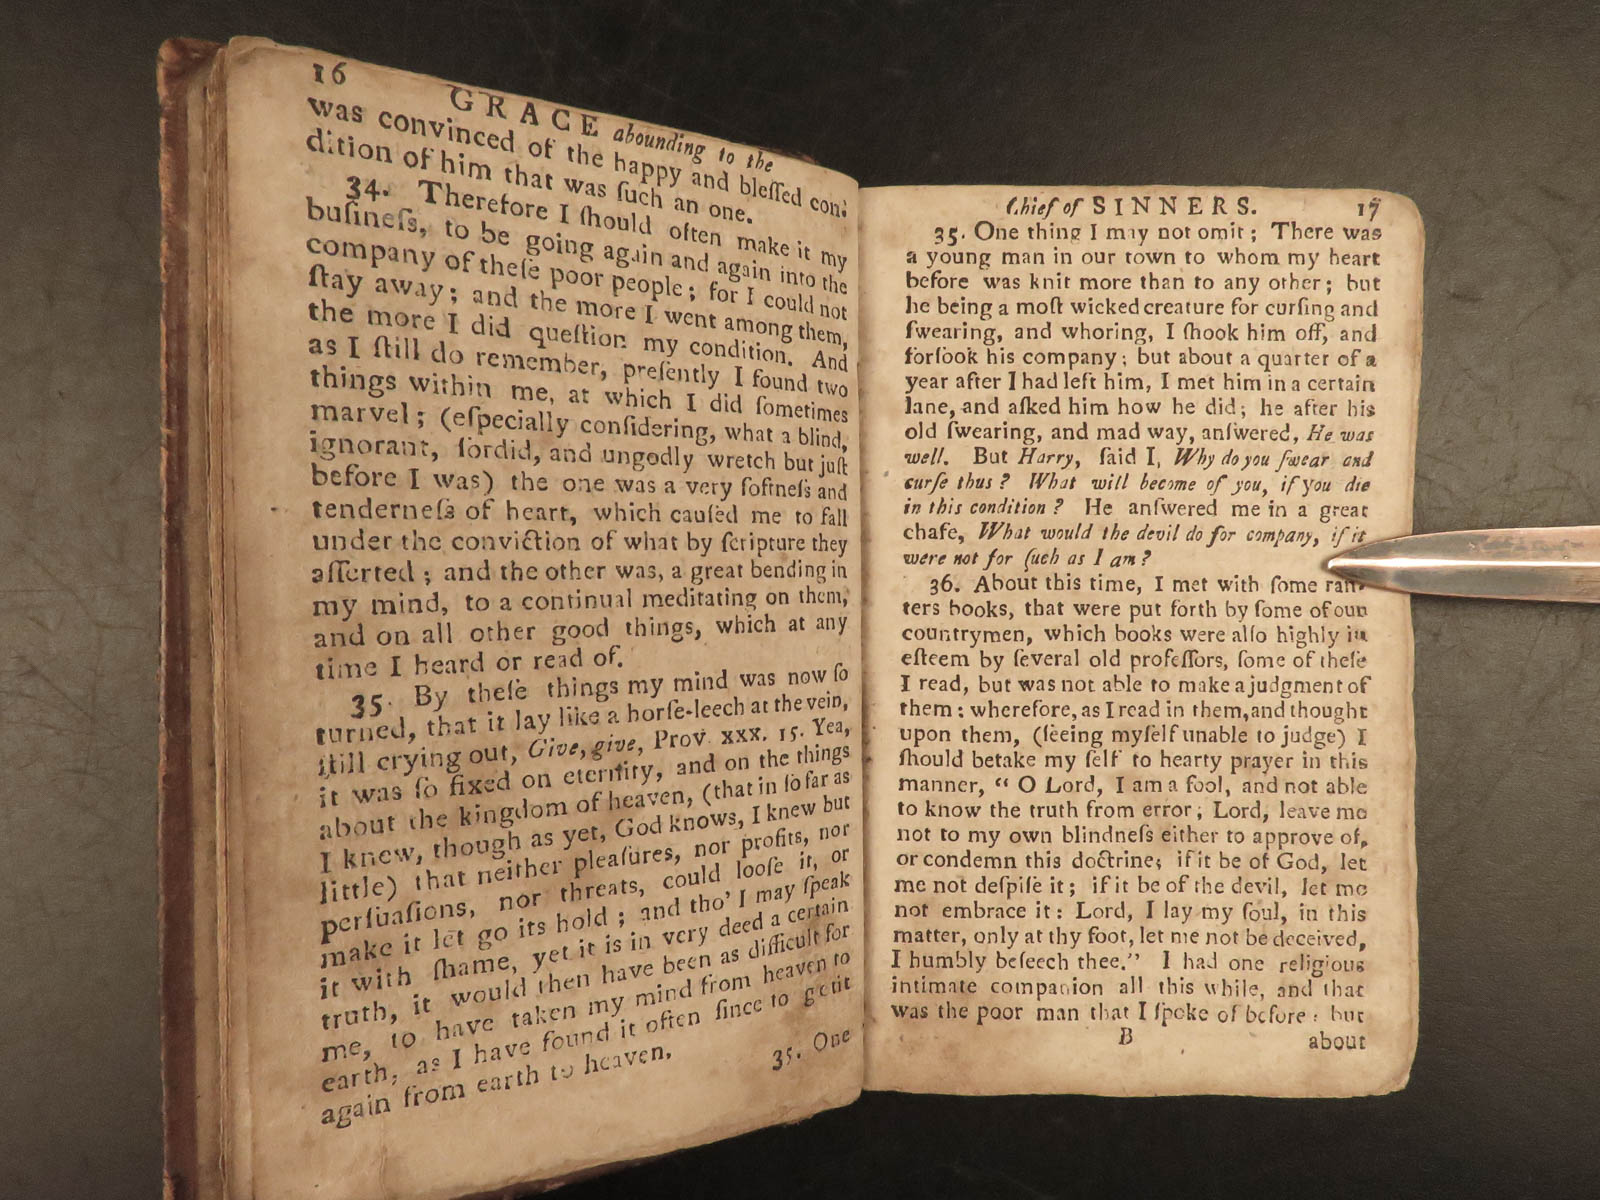 16
GRACE abounding to the
was convinced of the happy and bleſſed con-
dition of him that was ſuch an one.
34. Therefore I ſhould often make it my
buſineſs, to be going again and again into the
company of theſe poor people; for I could not
ſtay away; and the more I went among them,
the more I did queſtion my condition. And
as I ſtill do remember, preſently I found two
things within me, at which I did ſometimes
marvel; (eſpecially conſidering, what a blind,
ignorant, ſordid, and ungodly wretch but juſt
before I was) the one was a very ſoftneſs and
tenderneſs of heart, which cauſed me to fall
under the conviction of what by ſcripture they
aſſerted; and the other was, a great bending in
my mind, to a continual meditating on them,
and on all other good things, which at any
time I heard or read of.
35. By theſe things my mind was now ſo
turned, that it lay like a horſe-leech at the vein,
ſtill crying out, Give, give, Prov. xxx. 15. Yea,
it was ſo fixed on eternity, and on the things
about the kingdom of heaven, (that in ſo far as
I knew, though as yet, God knows, I knew but
little) that neither pleaſures, nor profits, nor
perſuaſions, nor threats, could looſe it, or
make it let go its hold; and tho' I may ſpeak
it with ſhame, yet it is in very deed a certain
truth, it would then have been as difficult for
me, to have taken my mind from heaven to
earth, as I have found it often ſince to get it
again from earth to heaven.
35. One
Chief of SINNERS. 17
35. One thing I may not omit; There was
a young man in our town to whom my heart
before was knit more than to any other; but
he being a moſt wicked creature for curſing and
ſwearing, and whoring, I ſhook him off, and
forſook his company; but about a quarter of a
year after I had left him, I met him in a certain
lane, and aſked him how he did; he after his
old ſwearing, and mad way, anſwered, He was
well. But Harry, ſaid I, Why do you ſwear and
curſe thus? What will become of you, if you die
in this condition? He anſwered me in a great
chafe, What would the devil do for company, if it
were not for ſuch as I am?
36. About this time, I met with ſome ran-
ters books, that were put forth by ſome of our
countrymen, which books were alſo highly in
eſteem by ſeveral old profeſſors, ſome of theſe
I read, but was not able to make a judgment of
them: wherefore, as I read in them, and thought
upon them, (ſeeing myſelf unable to judge) I
ſhould betake my ſelf to hearty prayer in this
manner, “ O Lord, I am a fool, and not able
to know the truth from error; Lord, leave me
not to my own blindneſs either to approve of,
or condemn this doctrine; if it be of God, let
me not deſpiſe it; if it be of the devil, let me
not embrace it: Lord, I lay my ſoul, in this
matter, only at thy foot, let me not be deceived,
I humbly beſeech thee.” I had one religious
intimate companion all this while, and that
was the poor man that I ſpoke of before: but
B about